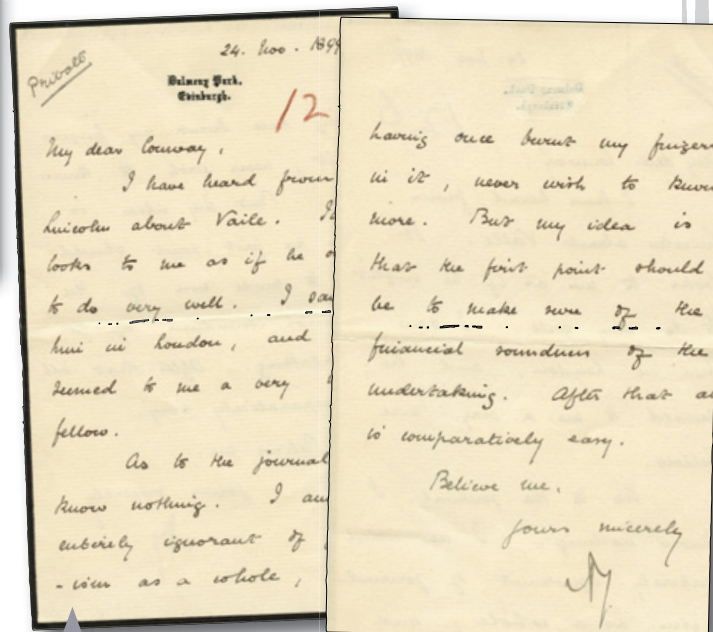 Private
24. Nov. 1899
Dalmeny Park,
Edinburgh.
12
My dear Conway,
I have heard from
Lincoln about Vaile.
looks to me as if he
to do very well. I
him in London, and
seemed to me a very
fellow.
As to the journal
know nothing. I am
entirely ignorant of
-ism as a whole,
having once burnt my fingers
in it, never wish to know
more. But my idea is
that the first point should
be to make sure of the
financial soundness of the
undertaking. After that
is comparatively easy.
Believe me.
Yours sincerely